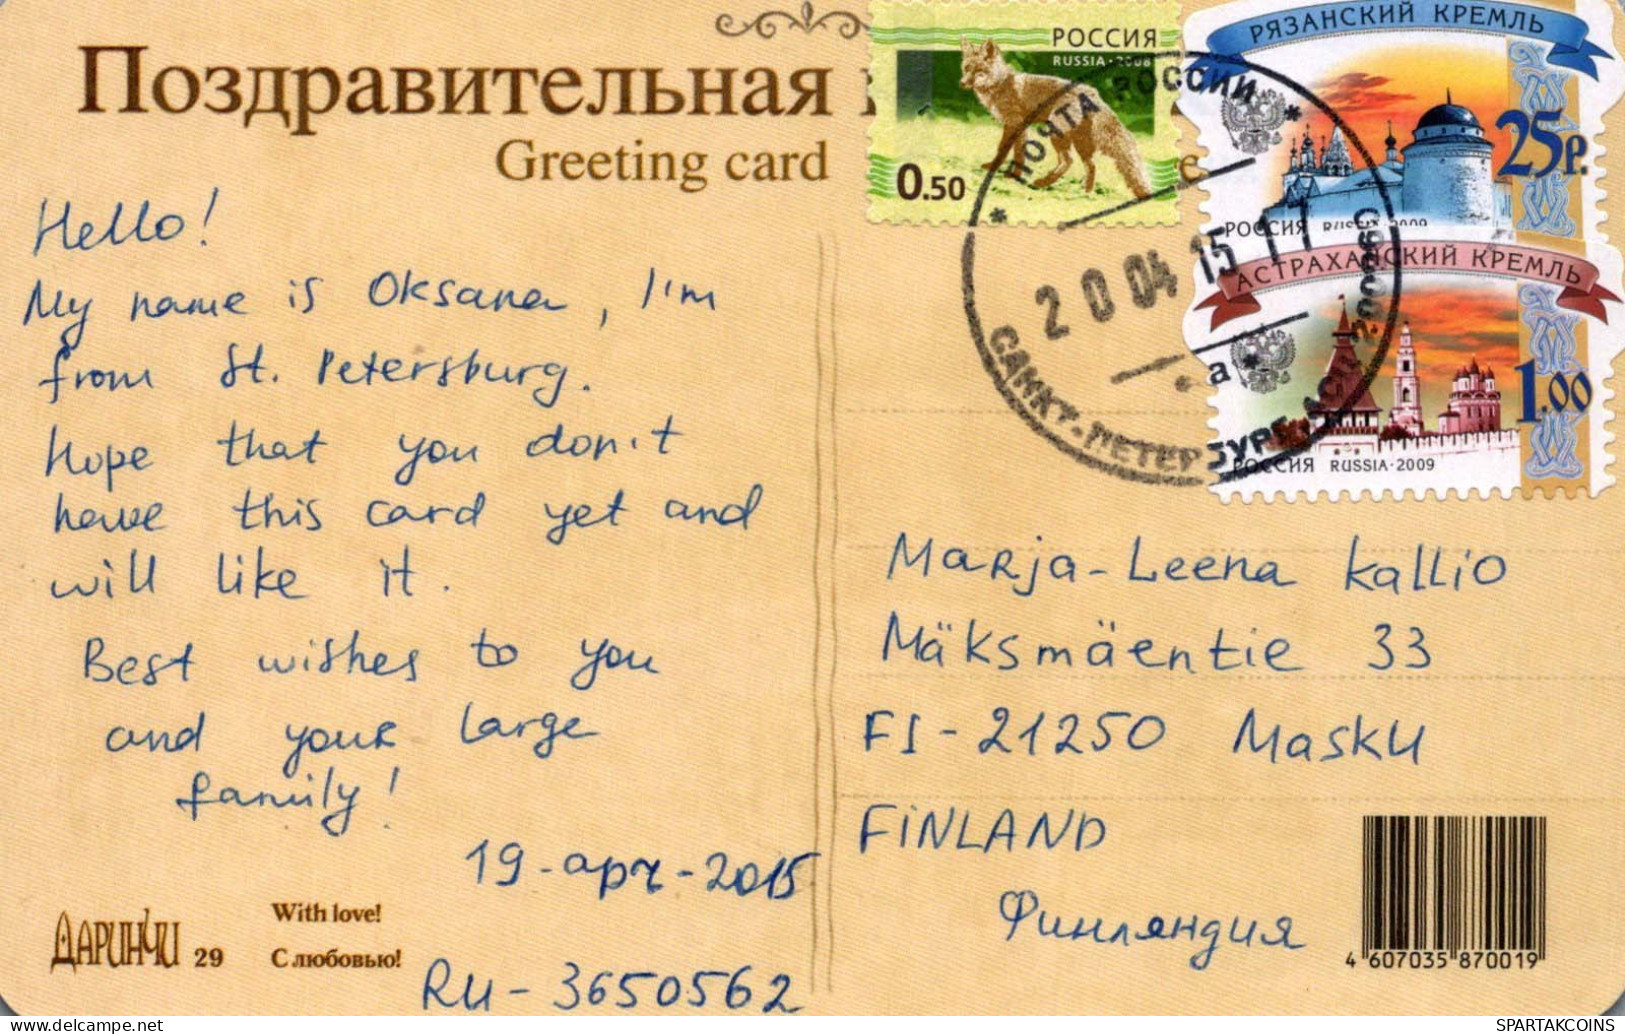 Поздравительная
Greeting card
Hello!
My name is Oksana, I'm
from St. Petersburg.
Hope that you don't
have this card yet and
will like it.
Best wishes to you
and your large
family!
19-apr-2015
ДАРИНЧИ 29
With love!
С любовью!
RU-3650562
РОССИЯ
RUSSIA·2008
0.50
РЯЗАНСКИЙ КРЕМЛЬ
25р.
РОССИЯ RUSSIA 2009
АСТРАХАНСКИЙ КРЕМЛЬ
1.00
РОССИЯ RUSSIA·2009
ПОЧТА РОССИИ
20 04 15 17
САНКТ-ПЕТЕРБУРГ
Marja-Leena Kallio
Mäksmäentie 33
FI-21250 Masku
FINLAND
Финляндия
4 607035 870019
SPARTAKCOINS
https://www.delcampe.net